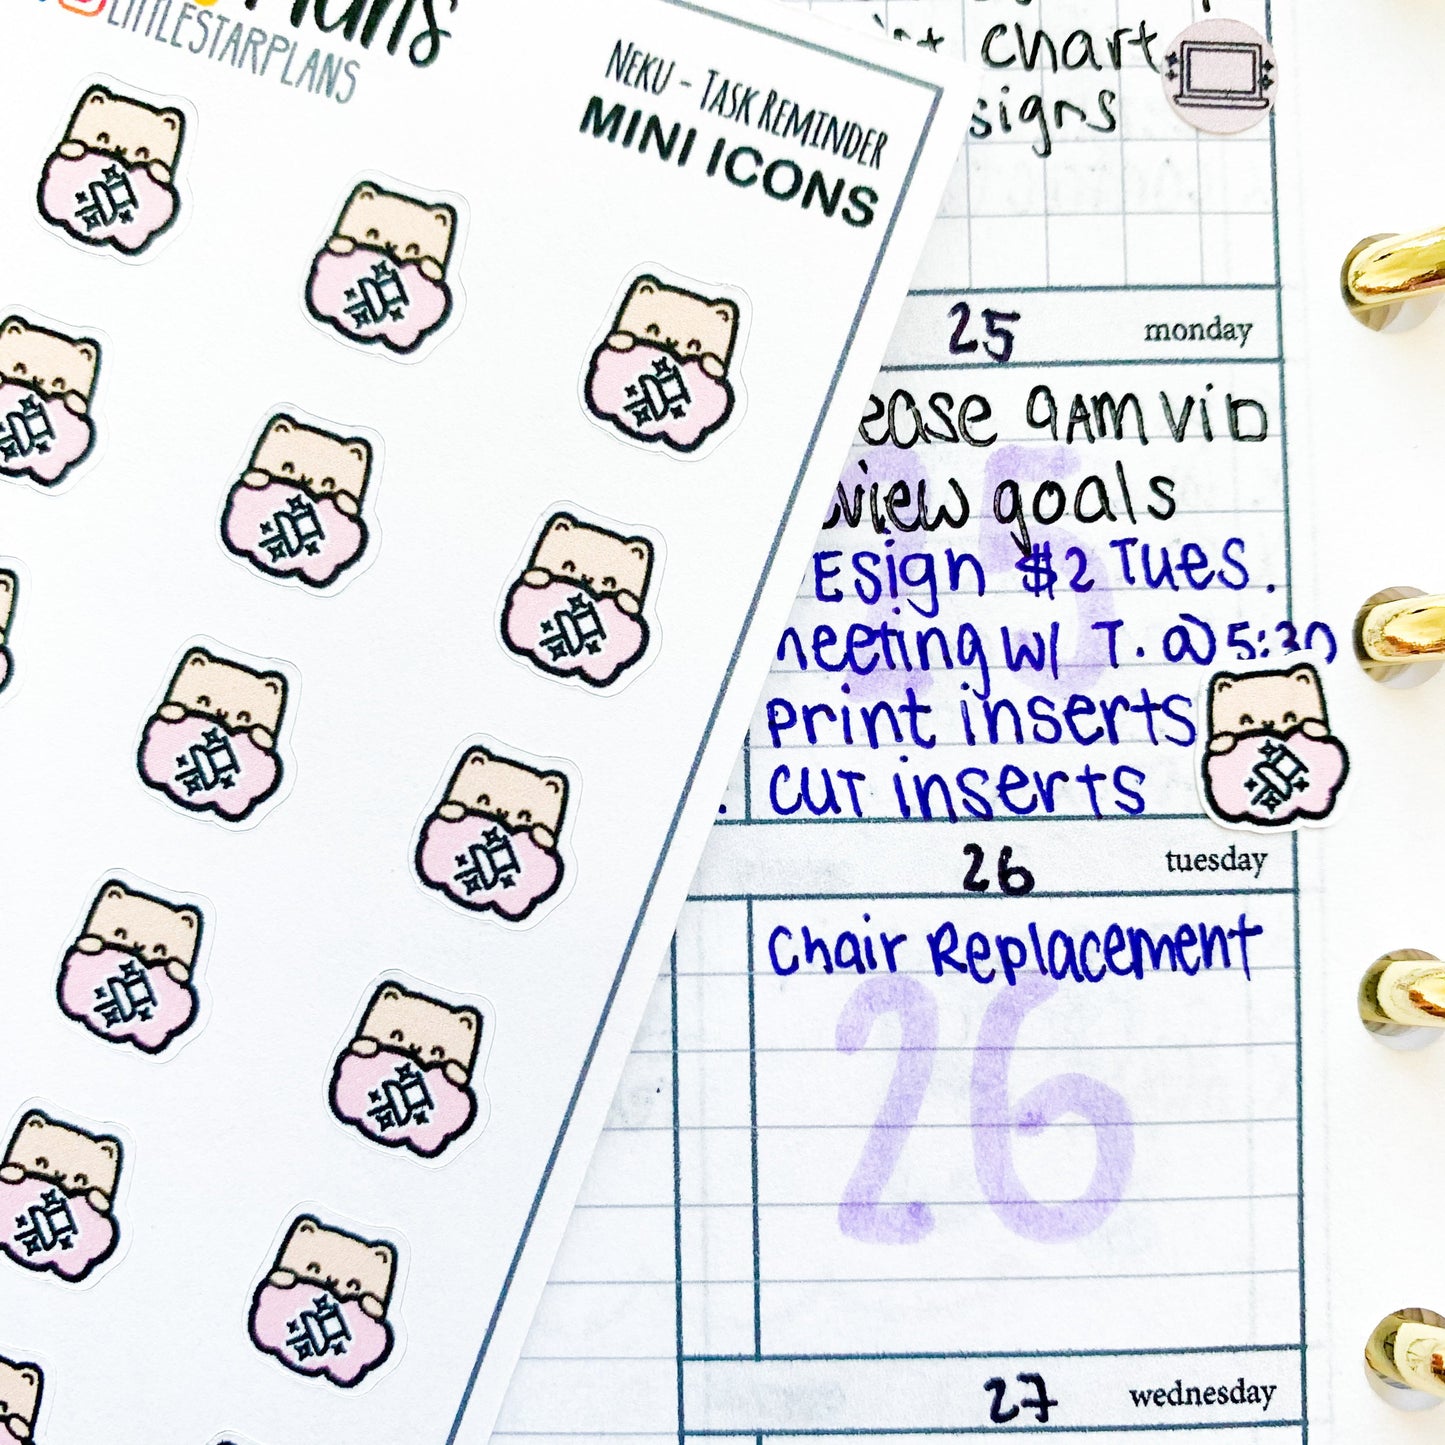 Plans
LITTLESTARPLANS
NEKU - TASK REMINDER
MINI ICONS
chart
signs
25 monday
ease 9AM VID
view goals
Esign $2 Tues.
meeting w/ T. @ 5:30
Print inserts
cut inserts
26 tuesday
Chair Replacement
26
27 wednesday